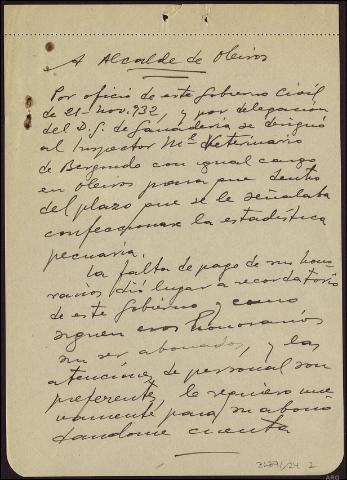 A Alcalde de Oleiros
Por oficio de este Gobierno Civil
de 21-Nov. 932, y por delegación
del D. G. de Ganadería se designó
al Inspector Mᵉˡ Veterinario
de Bergondo con igual cargo
en Oleiros para que dentro
del plazo que se le señalaba
confeccionase la estadística
pecuaria.
La falta de pago de sus hono-
rarios dió lugar a recordatorio
de este Gobierno y como
siguen esos honorarios
sin ser abonados, y las
atenciones de personal son
preferentes, le requiero nue-
vamente para su abono
dandome cuenta
32871/24 2
ARG